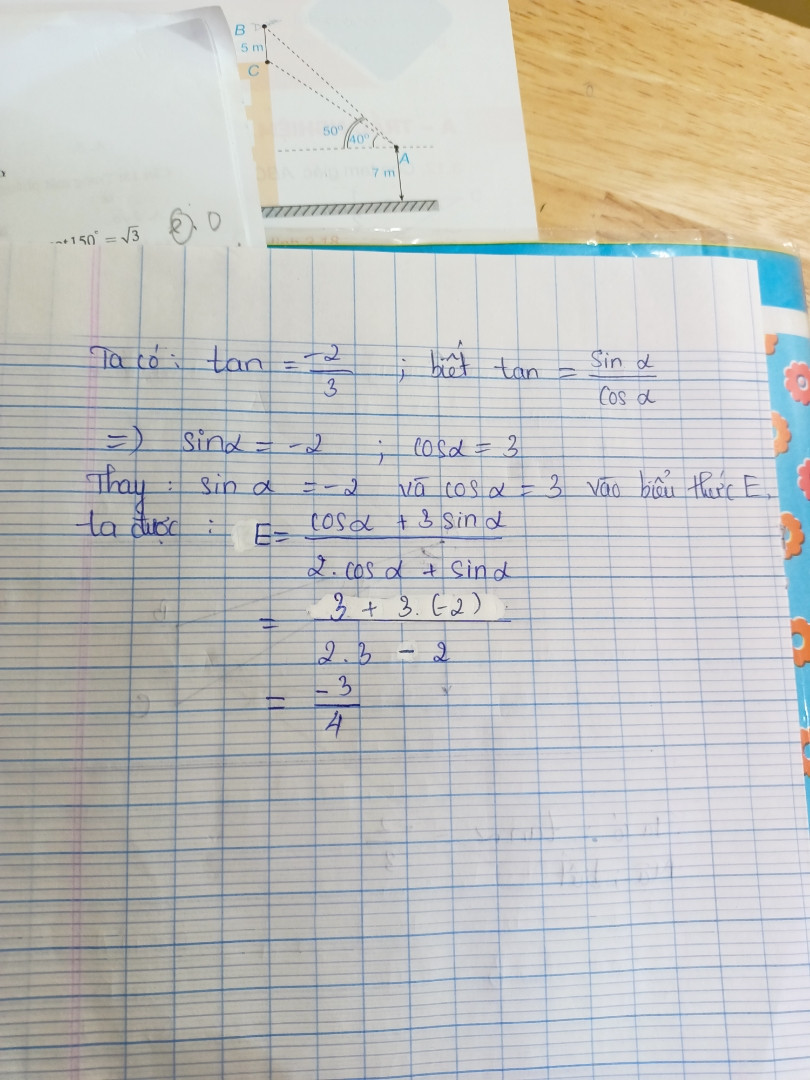 B
5 m
C
50° 40°
A
7 m
150° = √3
Ta có: tan = -2/3 ; biết tan = sin α / cos α
=) sinα = -2 ; cosα = 3
Thay : sin α = -2 và cos α = 3 vào biểu thức E,
ta được : E = cosα + 3 sin α / 2.cos α + sin α
= 3 + 3.(-2) / 2.3 - 2
= -3/4